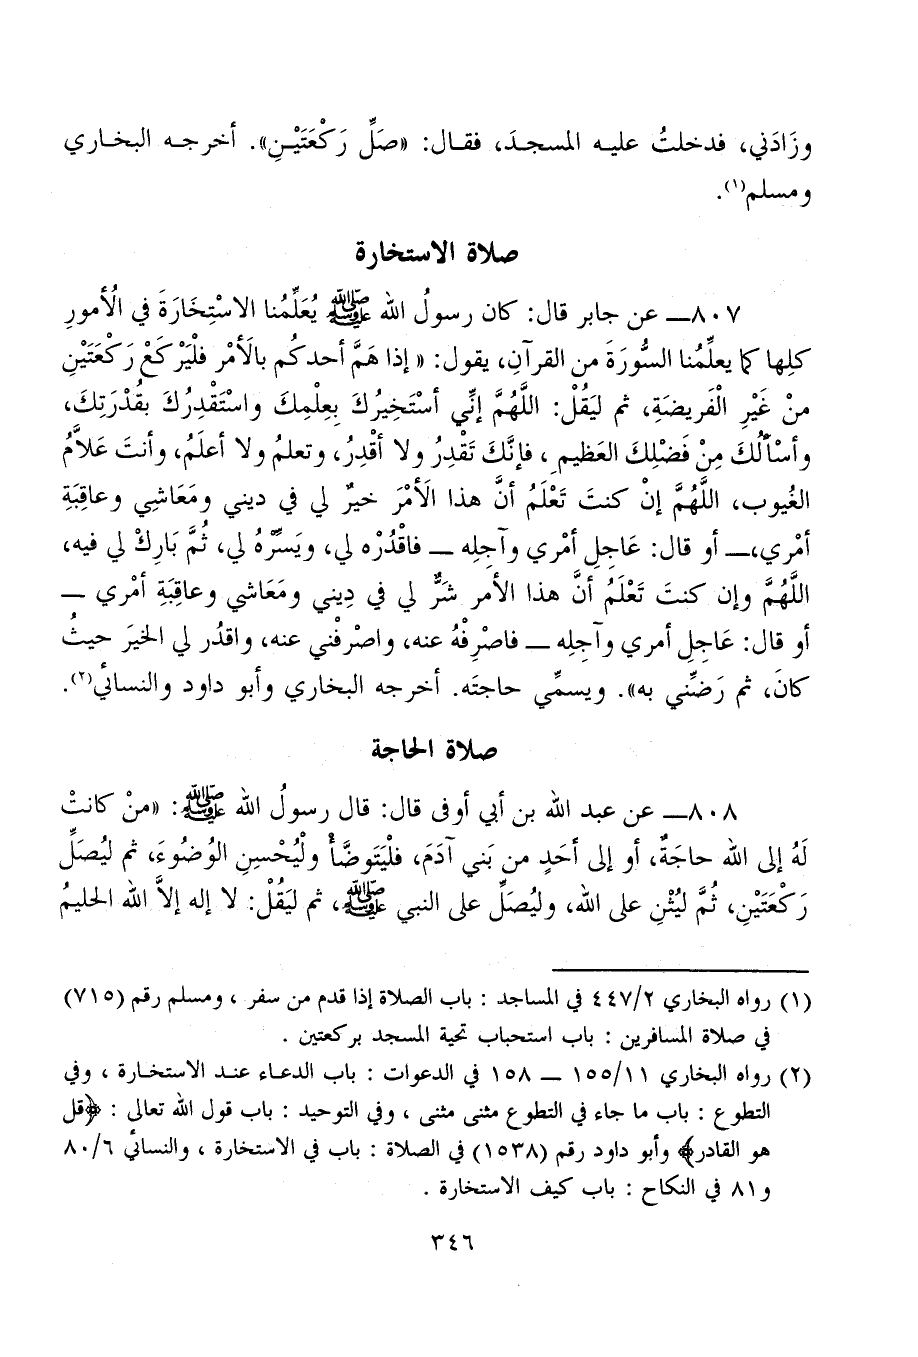 وزَادَني، فدخلتُ عليه المسجدَ، فقال: «صَلِّ رَكْعَتَيْنِ». أخرجه البخاري
ومسلم(١).
صلاة الاستخارة
٨٠٧ــ عن جابر قال: كان رسولُ الله ﷺ يُعَلِّمُنا الاسْتِخَارَةَ في الْأُمورِ
كلِها كما يعلِّمُنا السُّورَةَ من القرآنِ، يقول: «إذا هَمَّ أحدكُم بالأمْر فلْيَرْكَعْ رَكْعَتَيْنِ
منْ غَيْرِ الْفَريضَةِ، ثم ليَقُلْ: اللَّهُمَّ إنِّي أسْتَخيرُكَ بِعِلْمِكَ واسْتَقْدِرُكَ بقُدْرَتِكَ،
وأسْألُكَ مِنْ فَضْلِكَ العَظيمِ، فإنَّكَ تَقْدِرُ ولا أقْدِرُ، وتعلمُ ولا أعلَمُ، وأنتَ عَلاَّمُ
الغُيوب، اللَّهُمَّ إنْ كنتَ تَعْلَمُ أنَّ هذا الَأمْرَ خيرٌ لي في ديني ومَعَاشِي وعاقِبَةِ
أمْري،ــ أو قال: عَاجِلِ أمْري وآجِلِه ــ فاقْدُرْه لي، ويَسِّرْهُ لي، ثُمَّ بَارِكْ لي فيه،
اللَّهُمَّ وإن كنتَ تَعْلَمُ أنَّ هذا الأمر شرٌّ لي في دِيني ومَعَاشي وعاقِبَةِ أمْري ــ
أو قال: عَاجِلِ أمري وآجِلِه ــ فاصْرِفْهُ عنه، واصْرفْني عنه، واقدُر لي الخيرَ حيثُ
كانَ، ثم رَضِّني به». ويسمِّي حاجتَه. أخرجه البخاري وأبو داود والنسائي(٢).
صلاة الحاجة
٨٠٨ــ عن عبد الله بن أبي أوفى قال: قال رسولُ الله ﷺ: «منْ كانتْ
لَهُ إلى الله حاجَةٌ، أو إلى أحَدٍ من بَني آدَمَ، فلْيَتَوضَّأْ ولْيُحْسِنِ الوُضُوءَ، ثم ليُصَلِّ
رَكْعَتَيْنِ، ثُمَّ ليُثْنِ على الله، وليُصَلِّ على النبي ﷺ، ثم ليَقُلْ: لا إله إلاَّ الله الحليمُ
(١) رواه البخاري ٤٤٧/٢ في المساجد : باب الصلاة إذا قدم من سفر ، ومسلم رقم (٧١٥)
في صلاة المسافرين : باب استحباب تحية المسجد بركعتين .
(٢) رواه البخاري ١٥٥/١١ ــ ١٥٨ في الدعوات : باب الدعاء عند الاستخارة ، وفي
التطوع : باب ما جاء في التطوع مثنى مثنى ، وفي التوحيد : باب قول الله تعالى : ﴿قل
هو القادر﴾ وأبو داود رقم (١٥٣٨) في الصلاة : باب في الاستخارة ، والنسائي ٨٠/٦
و ٨١ في النكاح : باب كيف الاستخارة .
٣٤٦